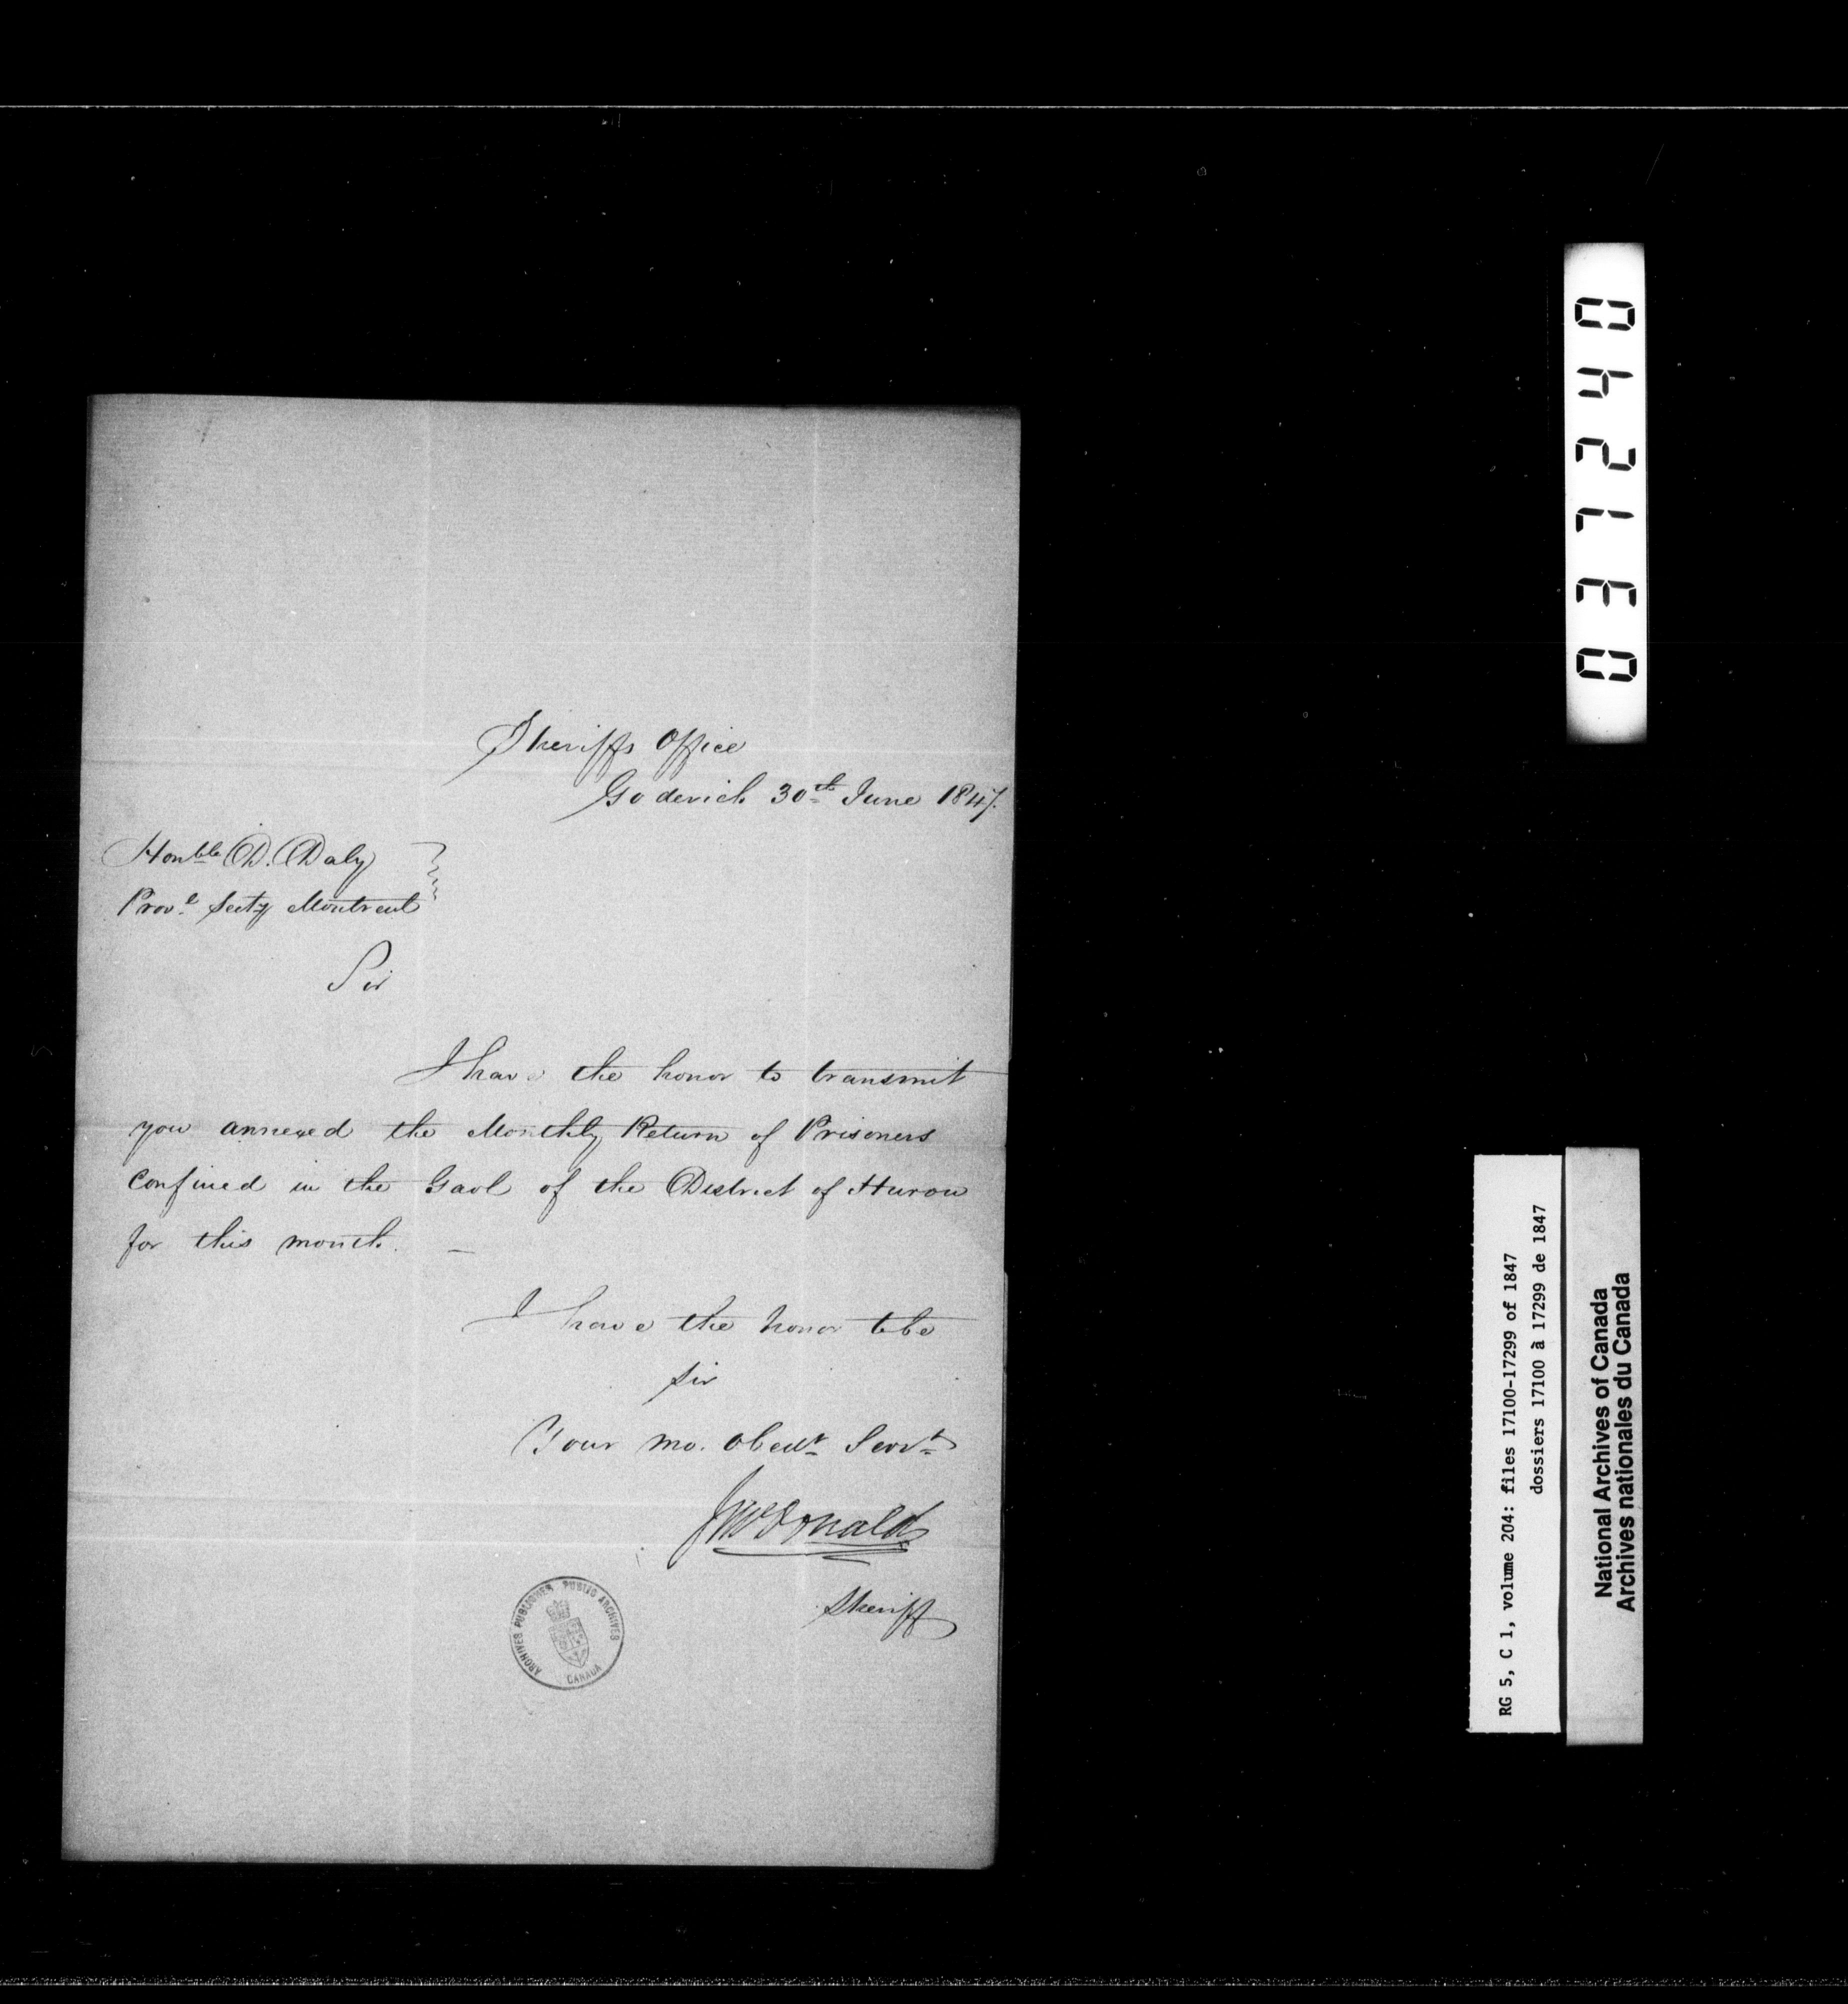 Sheriffs Office
Goderich 30th June 1847.
Honble D. Daly
Provl Secty Montreal
Sir
I have the honor to transmit
you annexed the Monthly Return of Prisoners
Confined in the Gaol of the District of Huron
for this month. —
I have the honor to be
Sir
Your mo. obedt Servt
J McDonald
Sheriff
ARCHIVES PUBLIQUES PUBLIC ARCHIVES
CANADA
042130
RG 5, C 1, volume 204: files 17100-17299 of 1847
dossiers 17100 à 17299 de 1847
National Archives of Canada
Archives nationales du Canada